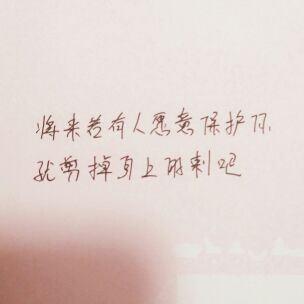 将来若有人愿意保护你
就剪掉身上的刺吧